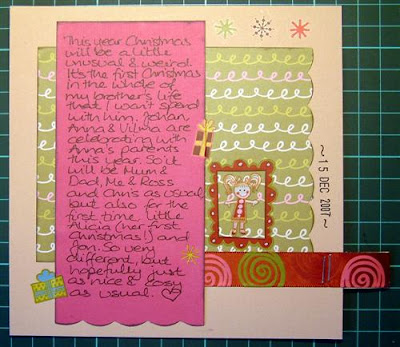 This year Christmas
will be a little
unusual & weird.
It's the first Christmas
in the whole of
my brother's life
that I won't spend
with him. Johan,
Anna & Vilma are
celebrating with
Anna's parents
this year. So it
will be Mum &
Dad, Me & Ross
and Chris as usual
but also for the
first time, little
Alicia (her first
Christmas!) and
Jon. So very
different, but
hopefully just
as nice & cosy
as usual. ♡
~ 15 DEC 2007 ~